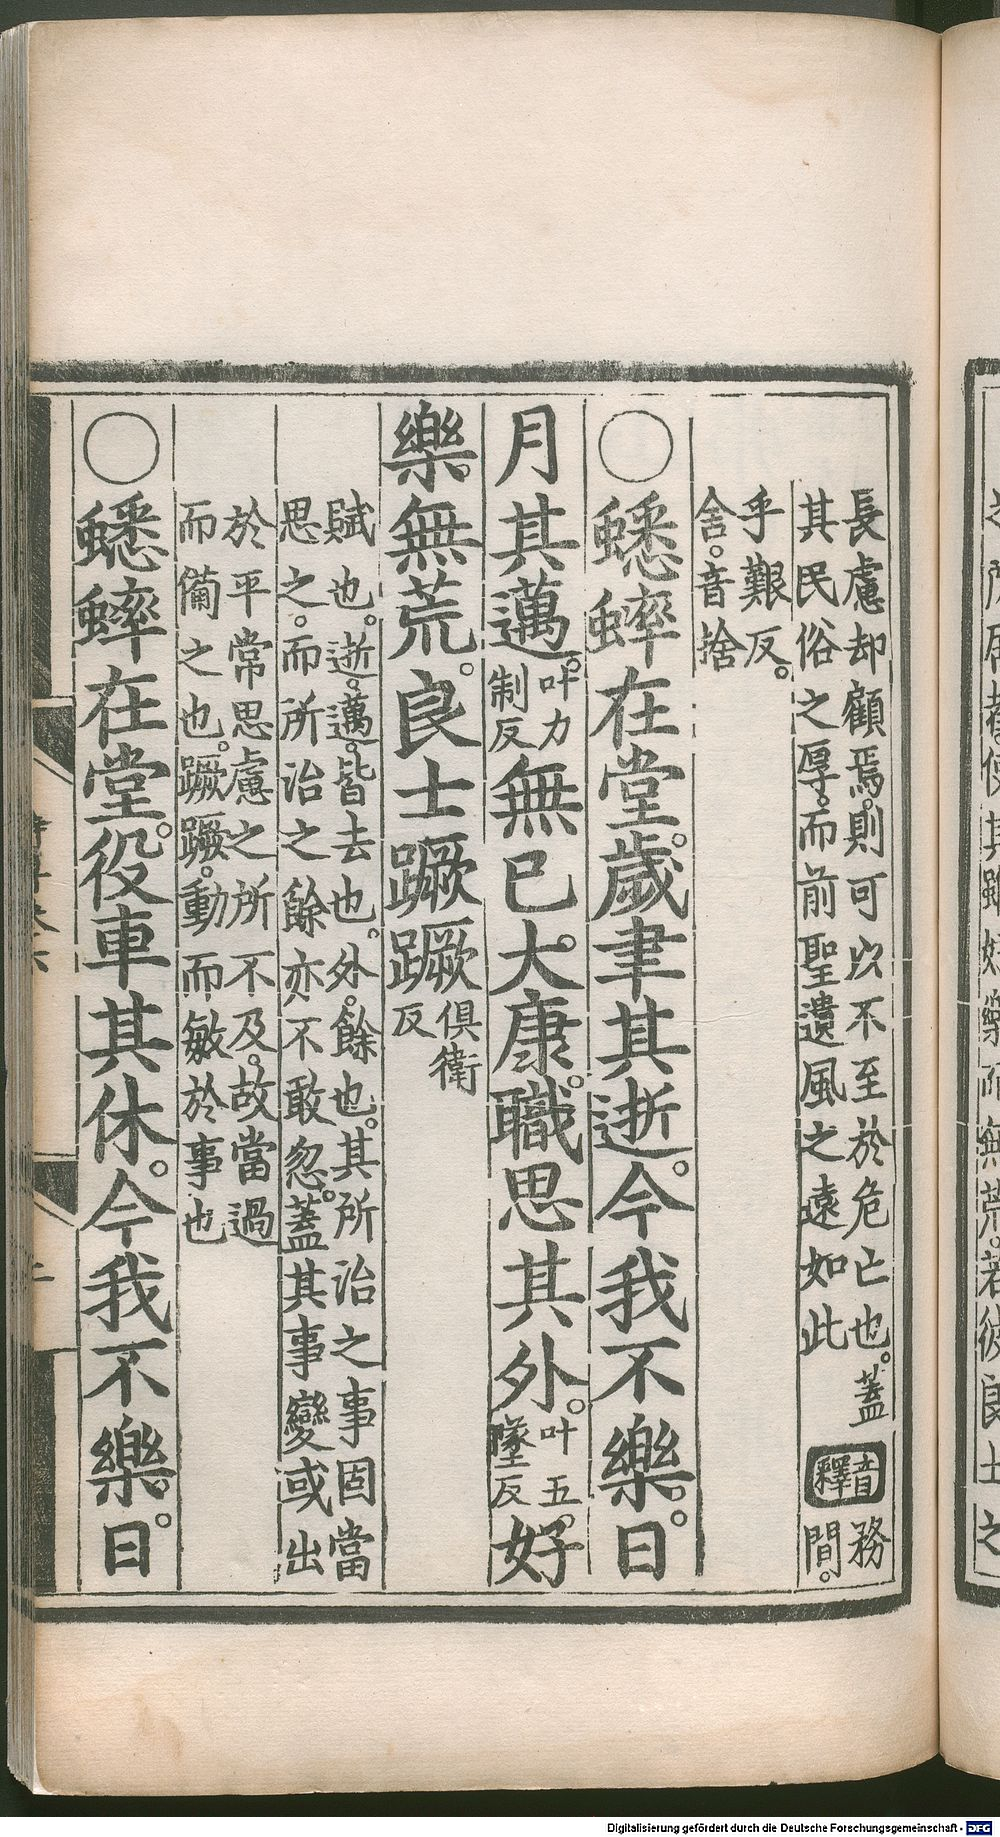 其雖好樂而無荒。若彼良士之
長慮却顧焉。則可以不至於危亡也。蓋
其民俗之厚。而前聖遺風之遠如此
音釋
務
間。
乎艱反。
舍。音捨
○蟋蟀在堂。歲聿其逝。今我不樂。日
月其邁。
叶力
制反
無已大康。職思其外。
叶五
墜反
好
樂無荒。良士蹶蹶
俱衛
反
賦也。逝。邁。皆去也。外。餘也。其所治之事固當
思之。而所治之餘亦不敢忽。蓋其事變或出
於平常思慮之所不及。故當過
而備之也。蹶蹶。動而敏於事也
○蟋蟀在堂。役車其休。今我不樂。日
Digitalisierung gefördert durch die Deutsche Forschungsgemeinschaft - DFG